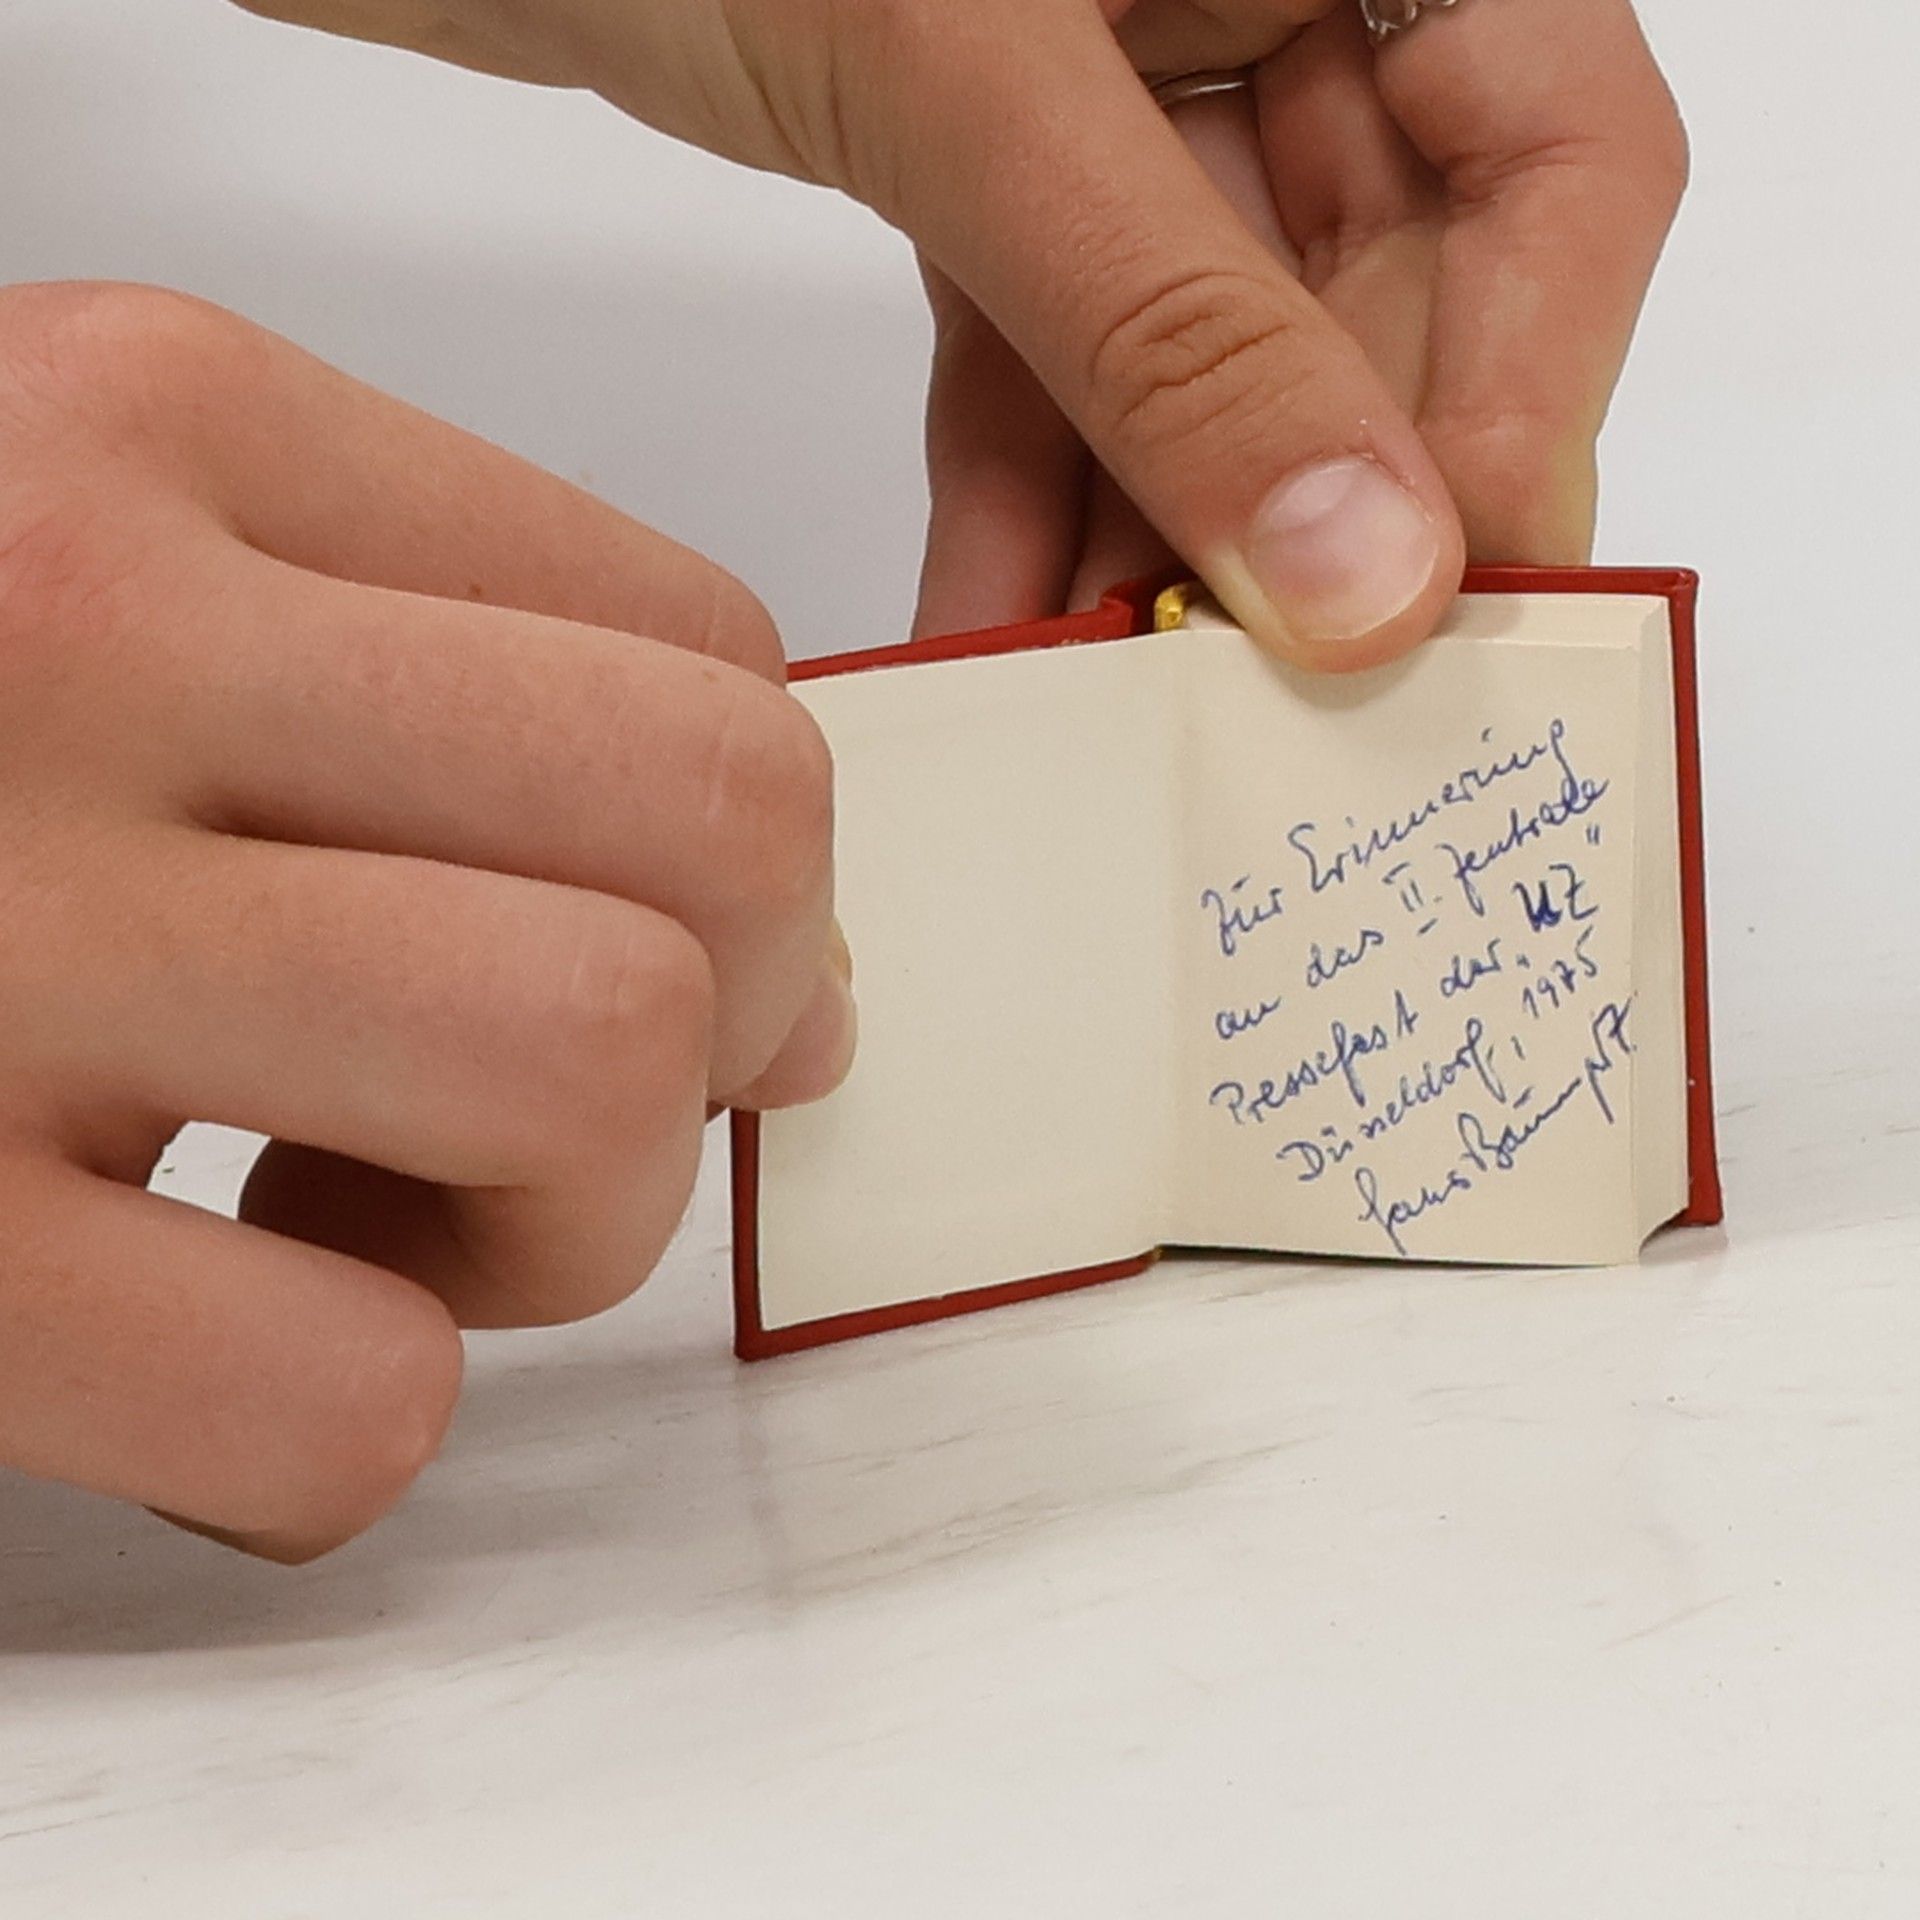 Zur Erinnerung
an das II. Zentrale
Pressefest der „UZ"
Düsseldorf, 1975
Hans